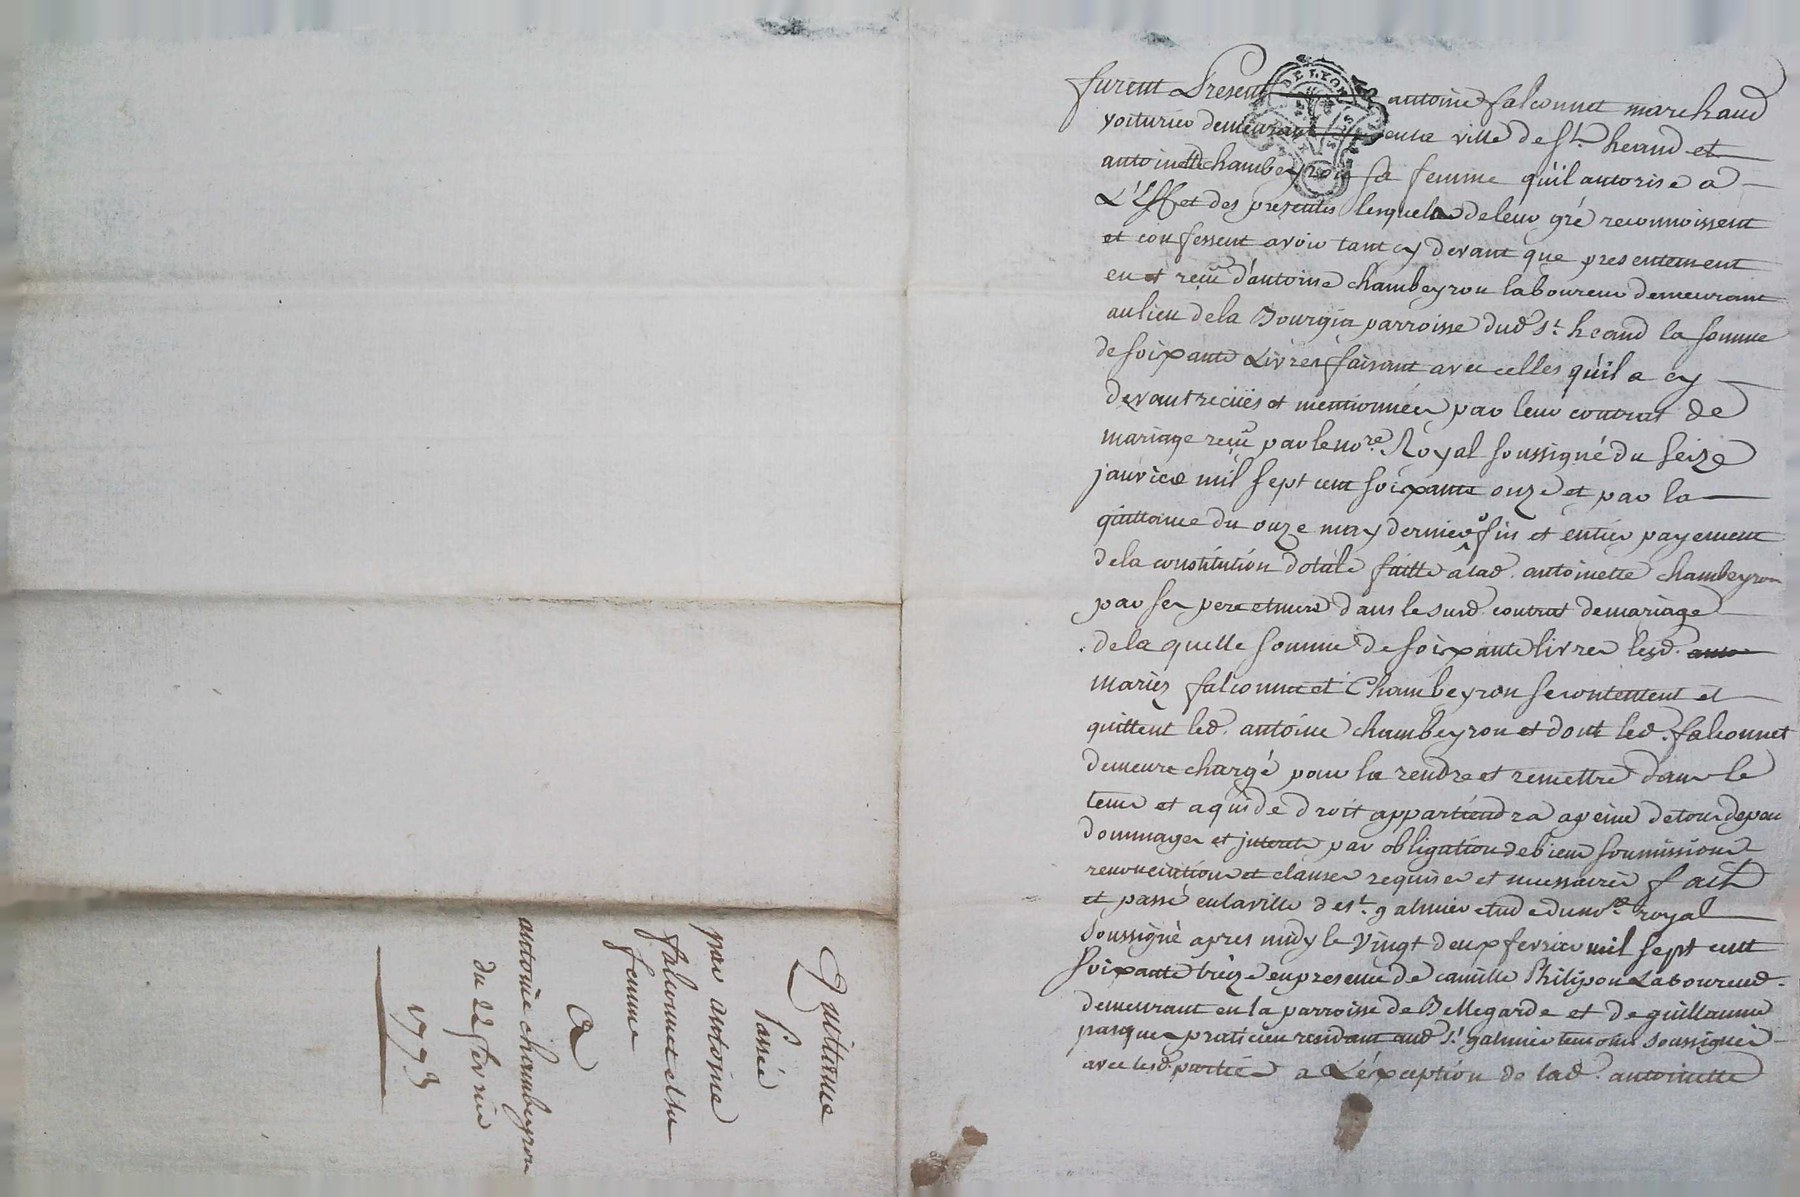 furent Presents antoine falconnet marchand
voiturier demeurant en la ville de St. heand et
antoinette chambeyron sa femme qu'il autorise a
L'Effet des presentes lesquels de leur gré reconnoissent
et confessent avoir tant cy devant que presentement
eu et reçu d'antoine chambeyron laboureur demeurant
au lieu de la Bourgia parroisse dud St. heand la somme
de soixante Livres faisant avec celles qu'il a cy
devant recües et mentionnées par leur contrat de
mariage reçu par le nore. Royal soussigné du seize
janvier mil sept cent soixante onze et par la
quittance du onze may dernier fin et entier payement
de la constitution dotale faitte a lad. antoinette chambeyron
par ses pere et mere dans le susd. contrat de mariage
de la quelle somme de soixante livres lesd.
mariez falconnet et Chambeyron se contentent et
quittent led. antoine chambeyron et dont led. falconnet
demeure chargé pour la rendre et remettre dans le
tems et a qui de droit appartiendra a peine de tous depens
dommages et interets par obligation de biens soumissions
renonciations et clauses requises et necessaires fait
et passé en la ville de St. galmier etude du nore. royal
soussigné apres midy le vingt deux fevrier mil sept cent
soixante treize en presence de camille Philipon Laboureur
demeurant en la parroisse de Bellegarde et de guillaume
pasques praticien residant aud St. galmier temoins soussignés
avec lesd. parties a L'exception de lad. antoinette
Quittance
Passée
par antoine
falconnet et sa
femme
A
antoine chambeyron
du 22 fevrier
1773
DE LYON